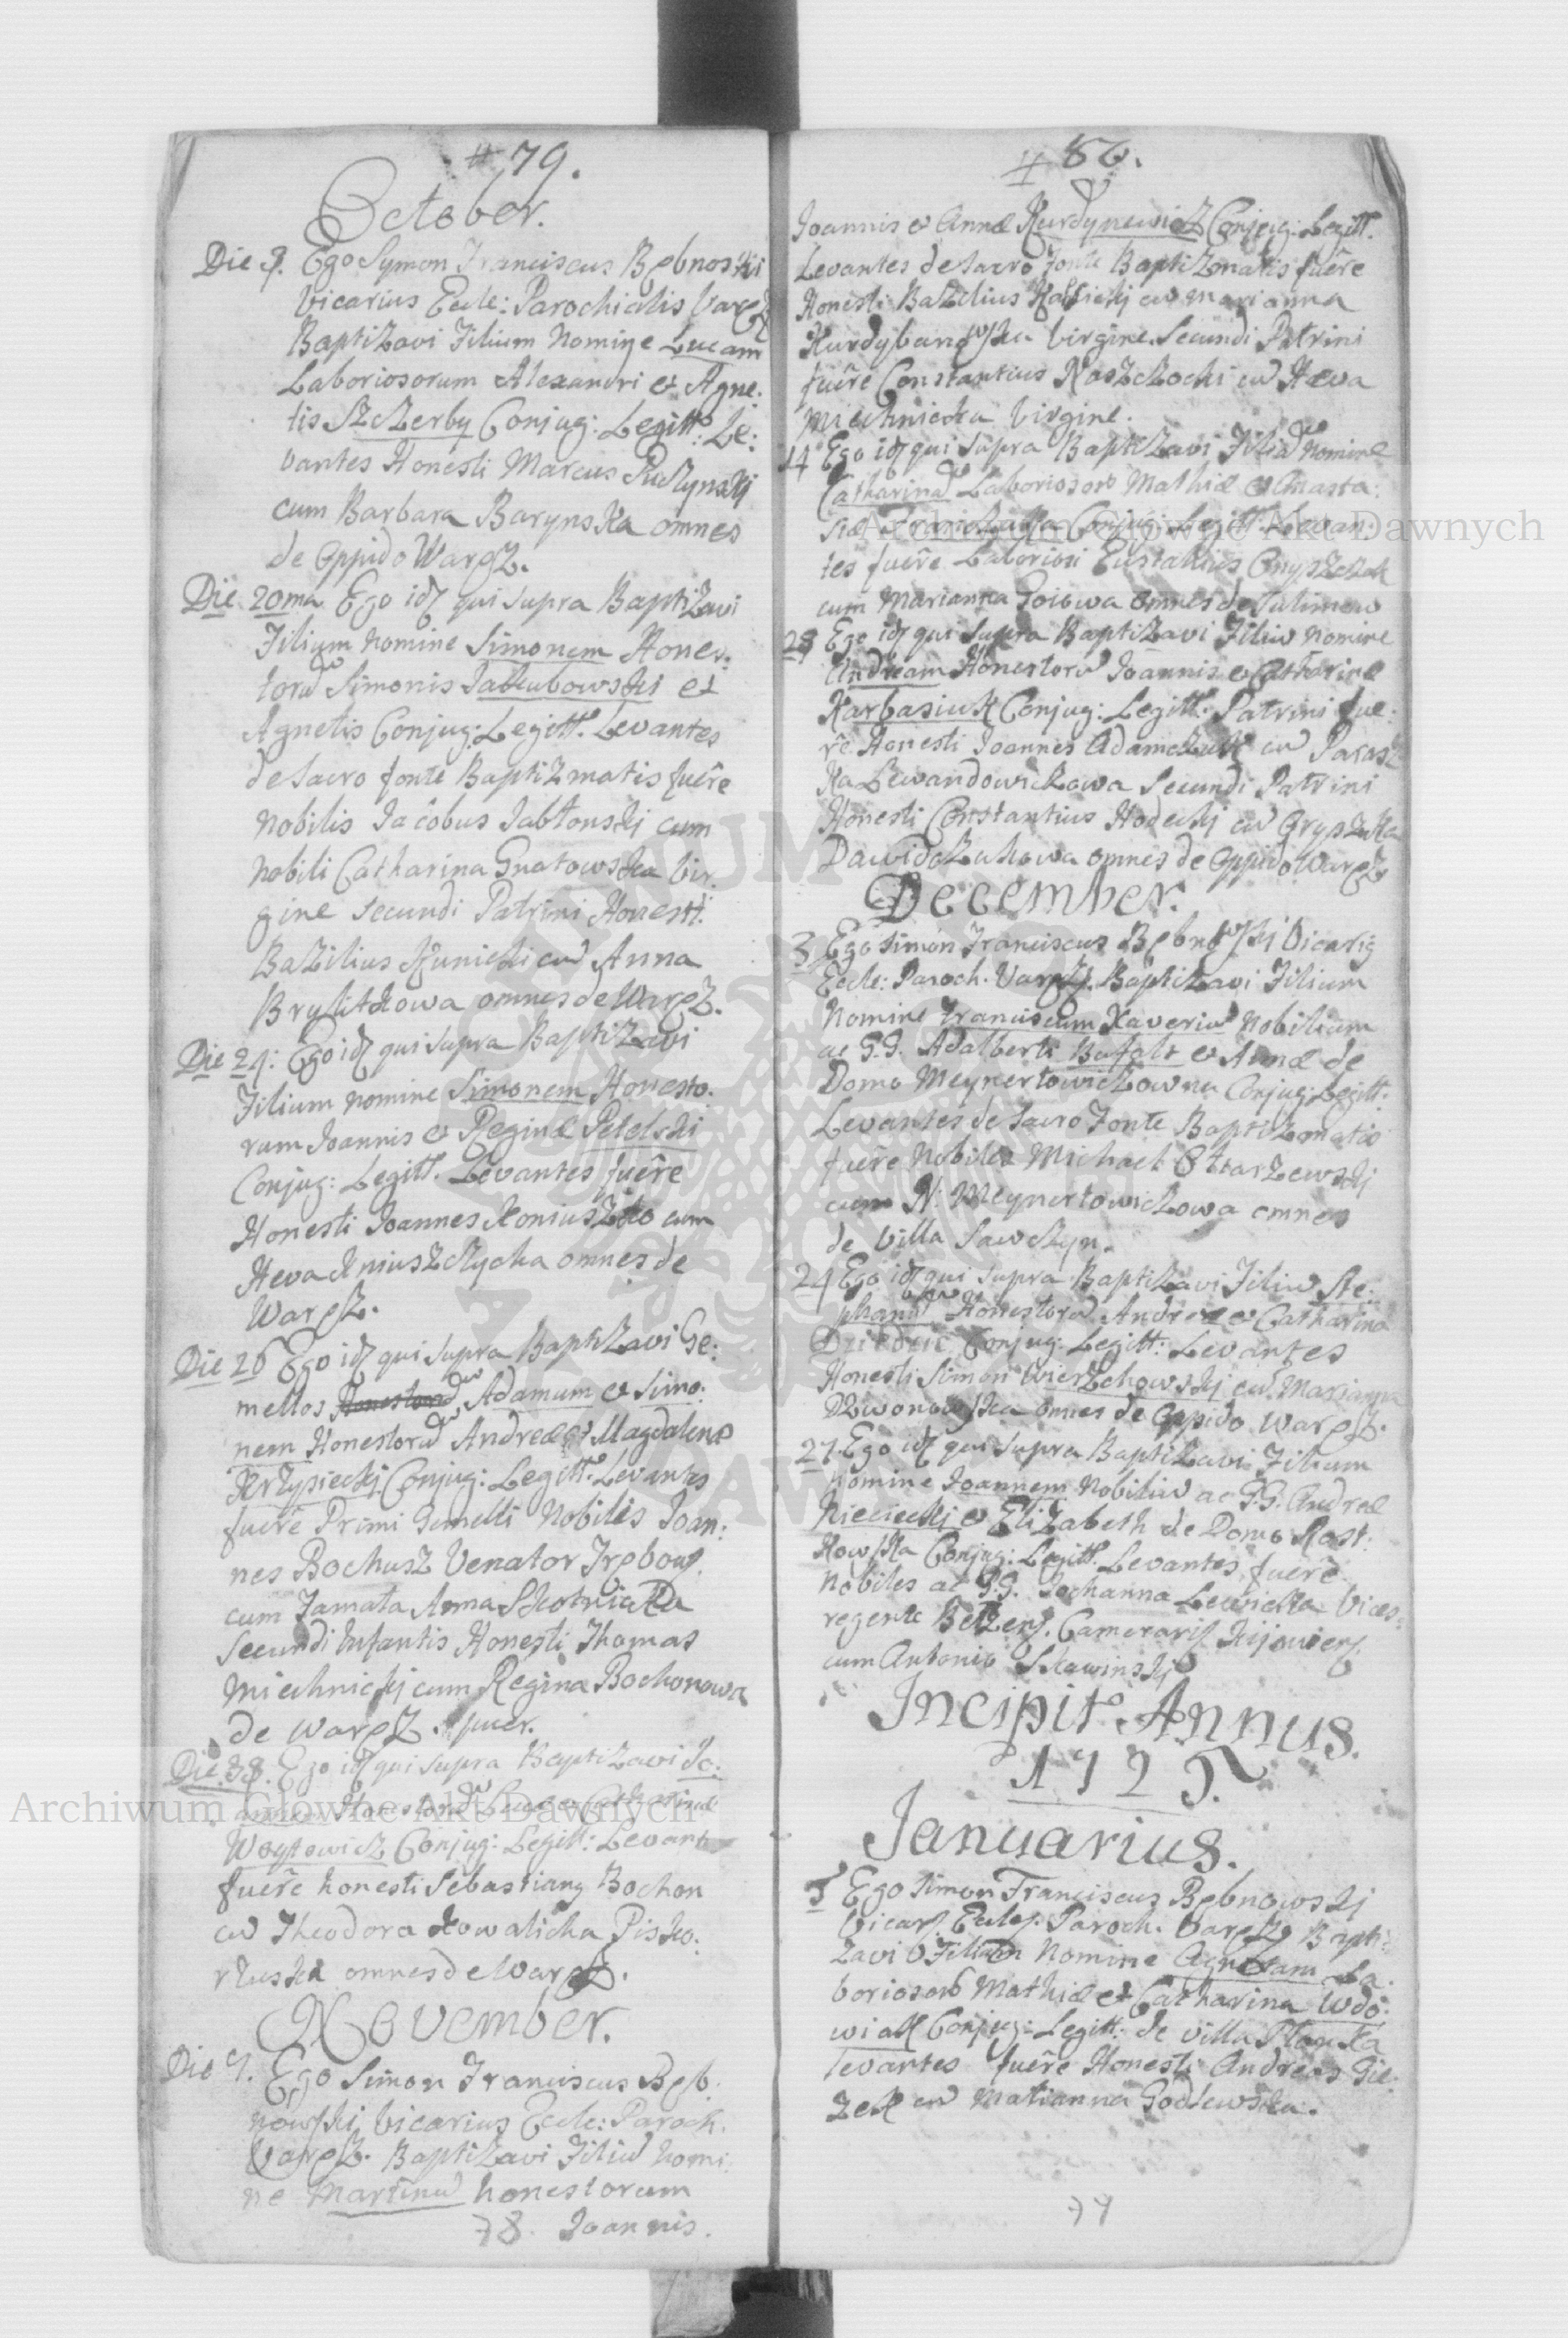 # 79.
October.
Die 9. Ego Symon Franciscus Bębnoski
Vicarius Eccle: Parochialis Varęz
Baptizavi Filium Nomine Lucam
Laboriosorum Alexandri et Agne:
tis Szczerby Conjug: Legitt: Le:
vantes Honesti Marcus
cum Barbara Barynska omnes
de Oppido Waręz.
Die 20ma Ego idz qui supra Baptizavi
Filium nomine Simonem Hones:
torū Simonis Jakubowski et
Agnetis Conjug: Legitt. Levantes
de Sacro fonte Baptizmatis fuêre
Nobilis Jacobus Jabłonskj cum
Nobili Catharina Gnatowska Vir:
gine secundi Patrini Honesti
Bazilius Kunicki cū Anna
Brylitkowa omnes de Waręz.
Die 24: Ego idz qui supra Baptizavi
Filium nomine Simonem Honesto:
rum Joannis et Reginæ Pelelski
Conjug: Legitt. Levantes fuêre
Honesti Joannes Koniuszko cum
Heva omnes de
Waręz.
Die 26 Ego idz qui supra Baptizavi Ge:
mellos Adamum et Simo:
nem Honestorū Andreæ et Magdalenæ
Conjug: Legitt. Levantes
fuêre Primi Gemelli Nobiles Joan:
nes Bochusz Venator
cum Famata Anna Skotnicka
Secundi Infantis Honesti Thomas
Miechnickj cum Regina Bochonowa
de Waręz
Die Ego idz qui supra Baptizavi Jo:
annem Honestorū Lucæ et Catharinæ
Woytowicz Conjug: Legitt: Levant
fuêre honesti Sebastiang Bochon
cū Theodora Kowalicha Pisko:
omnes de Waręz.
November.
Die 7. Ego Simon Franciscus Bęb:
nowski Vicarius Eccle: Paroch.
Varęz. Baptizavi Filiū nomi
ne Martinū honestorum
78. Joannis.
# 80.
Joannis et Annæ Kurdynewicz Conjug: Legitt.
Levantes de Sacro fonte Baptizmatis fuêre
Honesti Bazilius cū Marianna
Virgine. Secundi Patrini
fuêre Constantius cū Heva
Miechnicka Virgine.
14 Ego idz qui supra Baptizavi Filiā Nomine
Catharinā Laboriosorū Mathiæ et Anasta:
siæ Conjug: Legitt. Levan:
tes fuêre Laboriosi Eustakius
cum Marianna omnes de
28 Ego idz qui supra Baptizavi Filiū nomine
Andream Honestorū Joannis et Catharinæ
Karbasiuk Conjug: Legitt: Patrini fue:
re Honesti Joannes Adamczuk cū Parasz:
ka Lewandowickowa Secundi Patrini
Honesti Constantius Hodeckj cū Gryszka
omnes de Oppido Waręz
December.
3 Ego Simon Franciscus Bębnowskj Vicarig
Eccle: Paroch. Varęz. Baptizavi Filium
Nomine Franciscum Xaveriū Nobilium
ac G.G. Adalberti et Annæ de
Domo Meynertowiczowna Conjug: Legitt:
Levantes de Sacro Fonte Baptizmatis
fuêre Nobiles Michael Ołtarzewskj
cum N: Meynertowiczowa omnes
de Villa Sawczyn.
24 Ego idz qui supra Baptizavi Filiū Ste:
phanū Honestorū Andreæ et Catharina
Dziedzic Conjug: Legitt: Levantes
Honesti Simon Wierzchowskj cū Marianna
Dzwonowska omnes de Oppido Waręz.
27. Ego idz qui supra Baptizavi Filium
Nomine Joannem Nobiliū ac G.G. Andreæ
Nieciecki et Elizabeth de Domo Rost:
kowska Conjug: Legitt. Levantes fuêre
Nobiles ac G.G. Joohanna Lewicka Vices:
regente Belzens. Cameraris Kijoviens.
cum Antonio Skawinskj
Incipit Annus.
1725.
Januarius.
5 Ego Simon Franciscus Bębnowskj
Vicars. Eccles. Paroch. Varęz Bapti:
zavi Filiam Nomine Agnetam La:
boriosorū Mathiæ et Catharina Wdo:
wiak Conjug: Legitt: de villa
levantes fuêre Honesti Andreas Gie:
zek cū Marianna Godlewska.
79
Archiwum Główne Akt Dawnych
Archiwum Główne Akt Dawnych